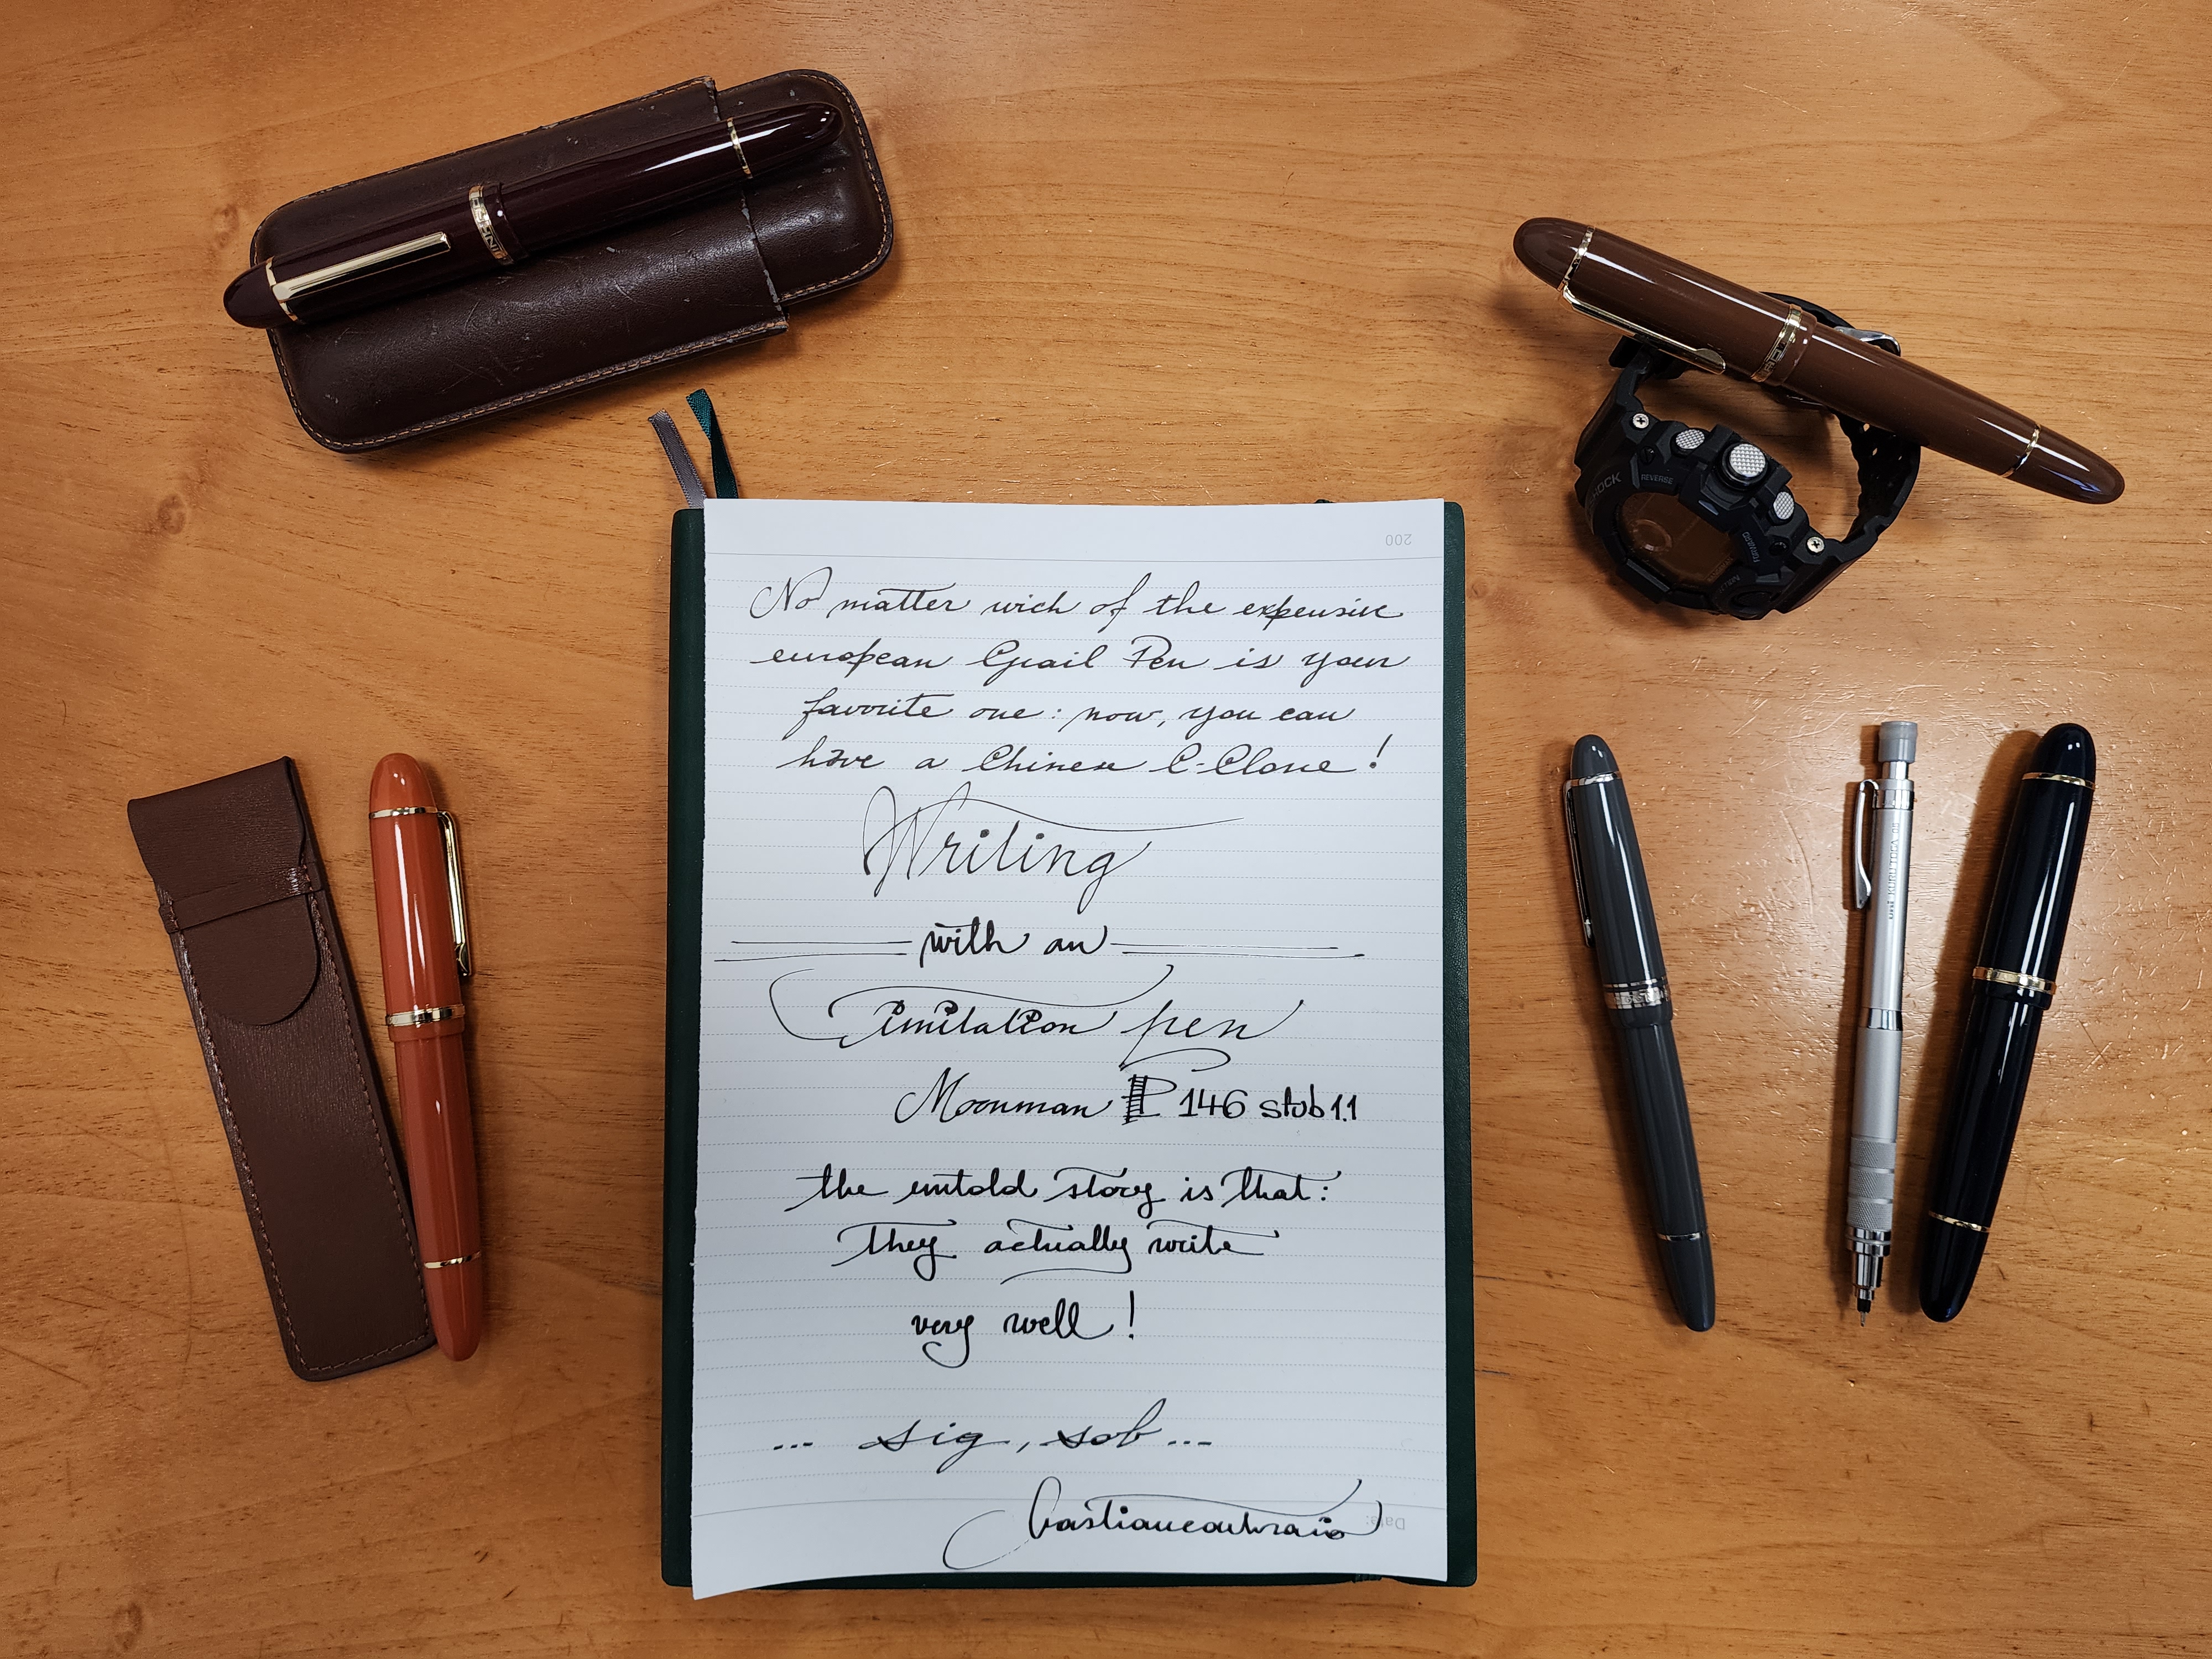 200
No matter wich of the expensive
european Grail Pen is your
favorite one: now, you can
have a Chinese C-Clone!
Writing
with an
imitation pen
Moonman P 146 stub 1.1
the untold story is that:
they actually write
very well!
... sig, sob...
Date:
SHOCK
REVERSE
FORWARD
uni KURU TOGA